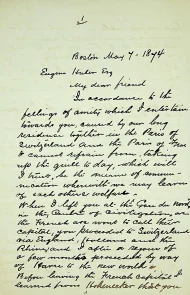 Boston May 7 - 1874
Eugene Esq
My dear friend
In accordance to the
feelings of amity which I entertain
towards you, caused by our long
residence together in the Paris of
Switzerland and the Paris of
I cannot refrain from taking
up the quill to day, which shall
I trust, be the means of commu-
nication wherewith we may learn
of each others welfare -
When I left you at the Gare du Nord,
in the of Civilization as
the French are wont to call their
Capital, you proceeded to Switzerland
via and the
Rhine, and I after a sejour of
a few months proceeded by way
of Havre to the new world -
Before leaving the French Capital I
learned from that you